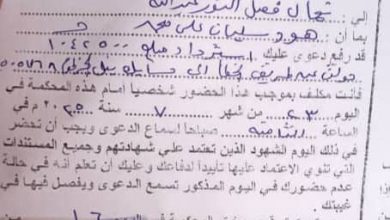 إلى : كمال فضل النور عبدالله
بما أن : هود سليمان علي محمد
قد رفع دعوى عليك استرداد مبلغ ١٠٤٢٥٠٠
فأنت مكلف بموجب هذا الحضور شخصيا امام هذه المحكمة في
اليوم ٢٣ من شهر ٧ سنة ٢٠٢٥ م في
الساعة الثامنة صباحا لسماع الدعوى ويجب أن تحضر
في ذلك اليوم الشهود الذين تعتمد علي شهادتهم وجميع المستندات
التي تنوي الاعتماد عليها تأييداً لدفاعك وعليك أن تعلم أنه في حالة
عدم حضورك في اليوم المذكور تسمع الدعوى ويفصل فيها في
غيبتك .